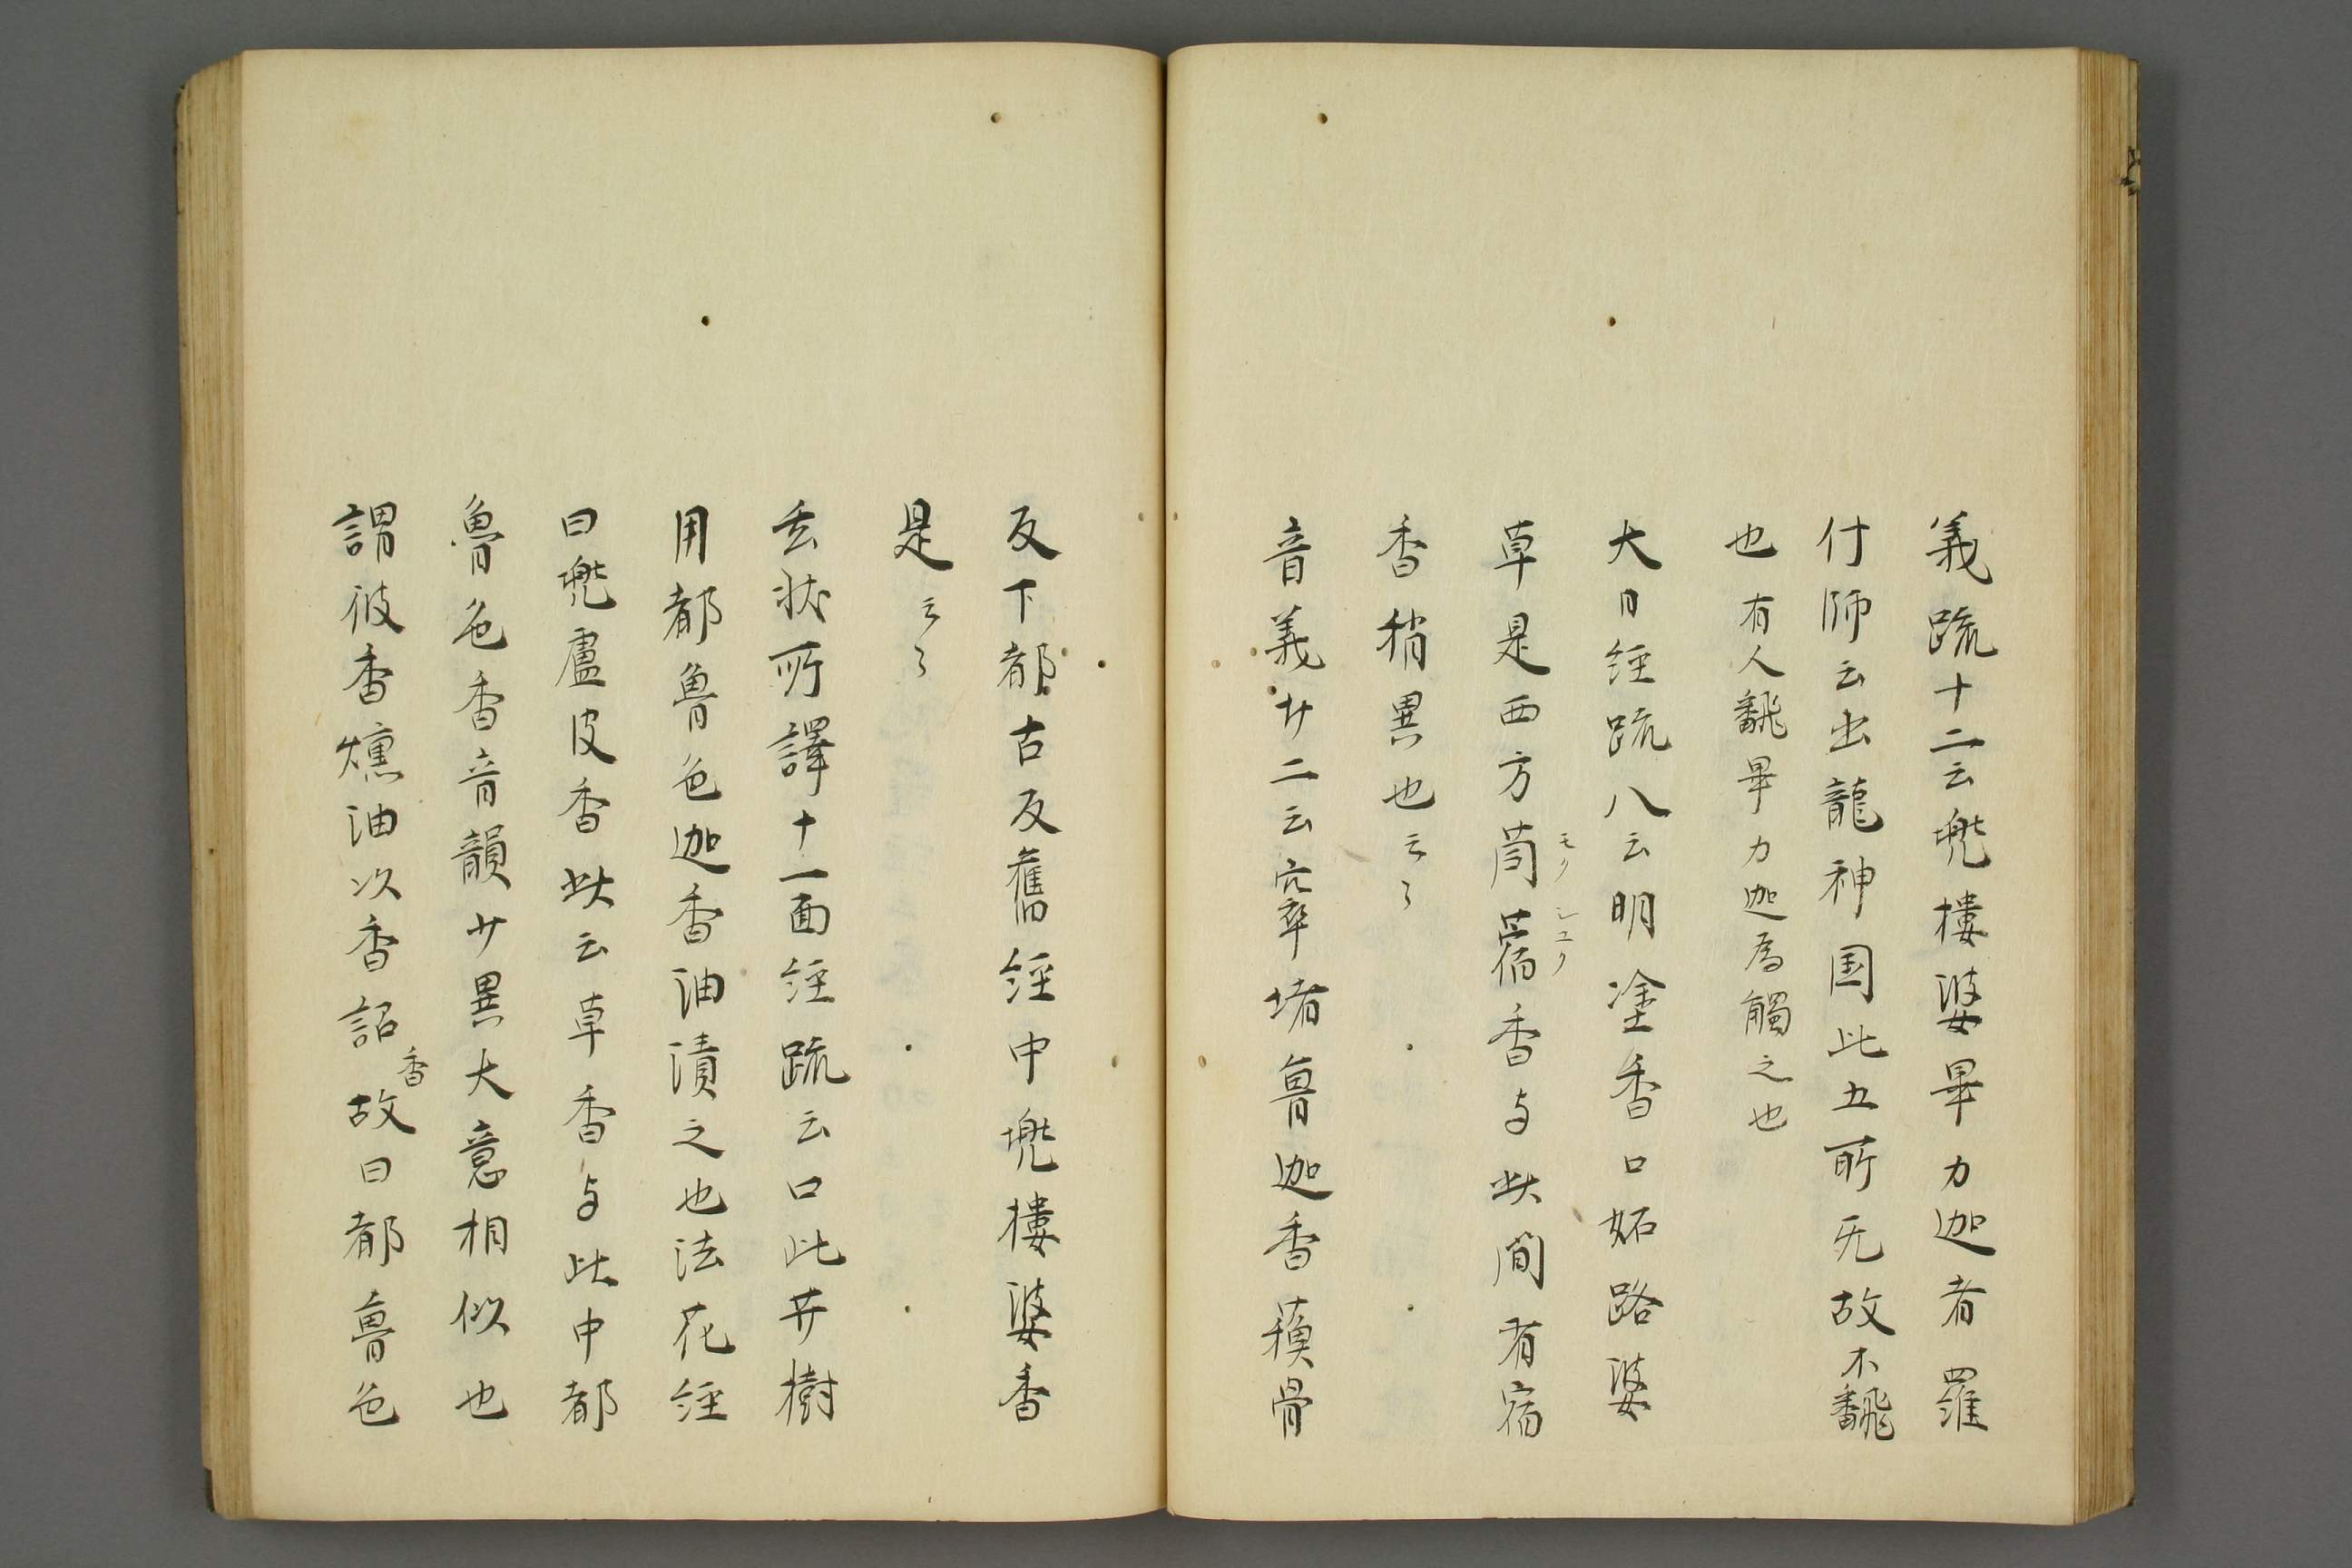 義疏十二云兜樓婆畢力迦者羅
什師云出龍神国此五所无故不飜
也有人飜畢力迦為觸之也
大日經疏八云明塗香口妬路婆
草是西方苘蓿香与此間有宿
モク
シユク
香稍異也云々
音義廿二云窣堵魯迦香蘓骨
反下都古反舊經中兜樓婆香
是云々
玄奘所譯十一面經疏云口此廾樹
用都魯色迦香油漬之也法花經
曰兜盧皮香此云草香与此中都
魯色香音韻廾異大意相似也
謂彼香燻油次香詔香故曰都魯色